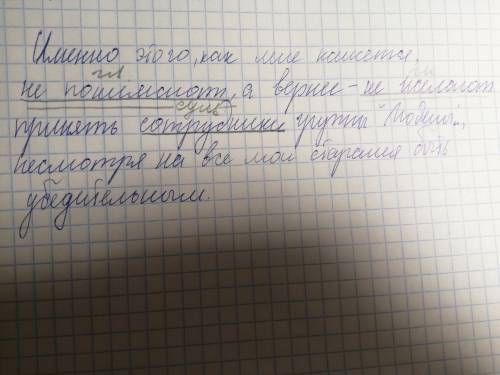 Именно этого, как мне кажется,
гл гл
не понимают, а вернее - не желают
сущ
принять сотрудники группы "Модели",
несмотря на все мои старания быть
убедительным.